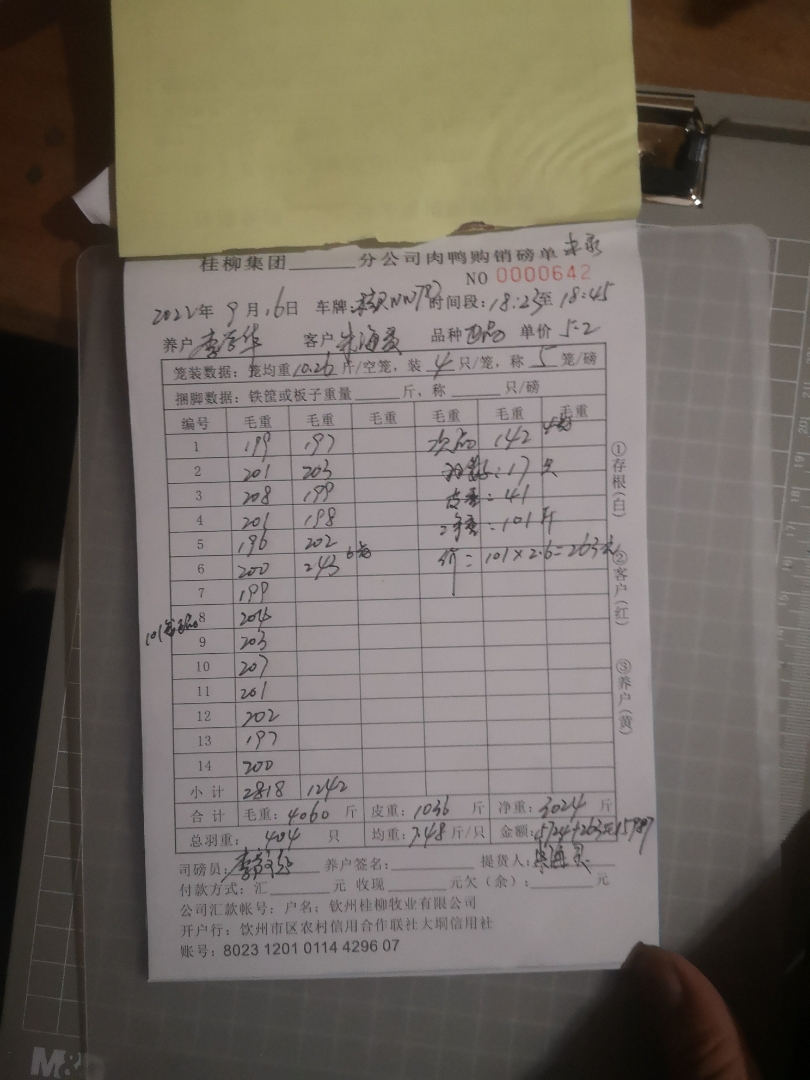 桂柳集团______分公司肉鸭购销磅单
NO 0000642
2022年 9月16日 车牌: 时间段:18:23至18:45
养户 李 华 客户 朱海 品种 西 单价 5.2
笼装数据:笼均重10.26斤/空笼,装4只/笼,称5笼/磅
捆脚数据:铁筐或板子重量______斤,称______只/磅
编号 毛重 毛重 毛重 毛重 毛重 毛重
1 199 197 次品 142 4笼
2 201 203 羽数:17只
3 208 199 皮重:41
4 201 198 净重:101斤
5 196 202
6 200 243 6笼 价=101×2.6=263元
7 199
8 204
9 203
10 207
11 201
12 202
13 197
14 200
小计 2818 1242
合计 毛重:4060斤 皮重:1036斤 净重:3024斤
总羽重:404只 均重:7.48斤/只 金额:15724+263=15987
司磅员: 养户签名:______ 提货人:朱海
付款方式:汇______元 收现______元欠(余):______元
公司汇款帐号:户名:钦州桂柳牧业有限公司
开户行:钦州市区农村信用合作联社大垌信用社
账号:8023 1201 0114 4296 07
①存根(白)
②客户(红)
③养户(黄)
M&G